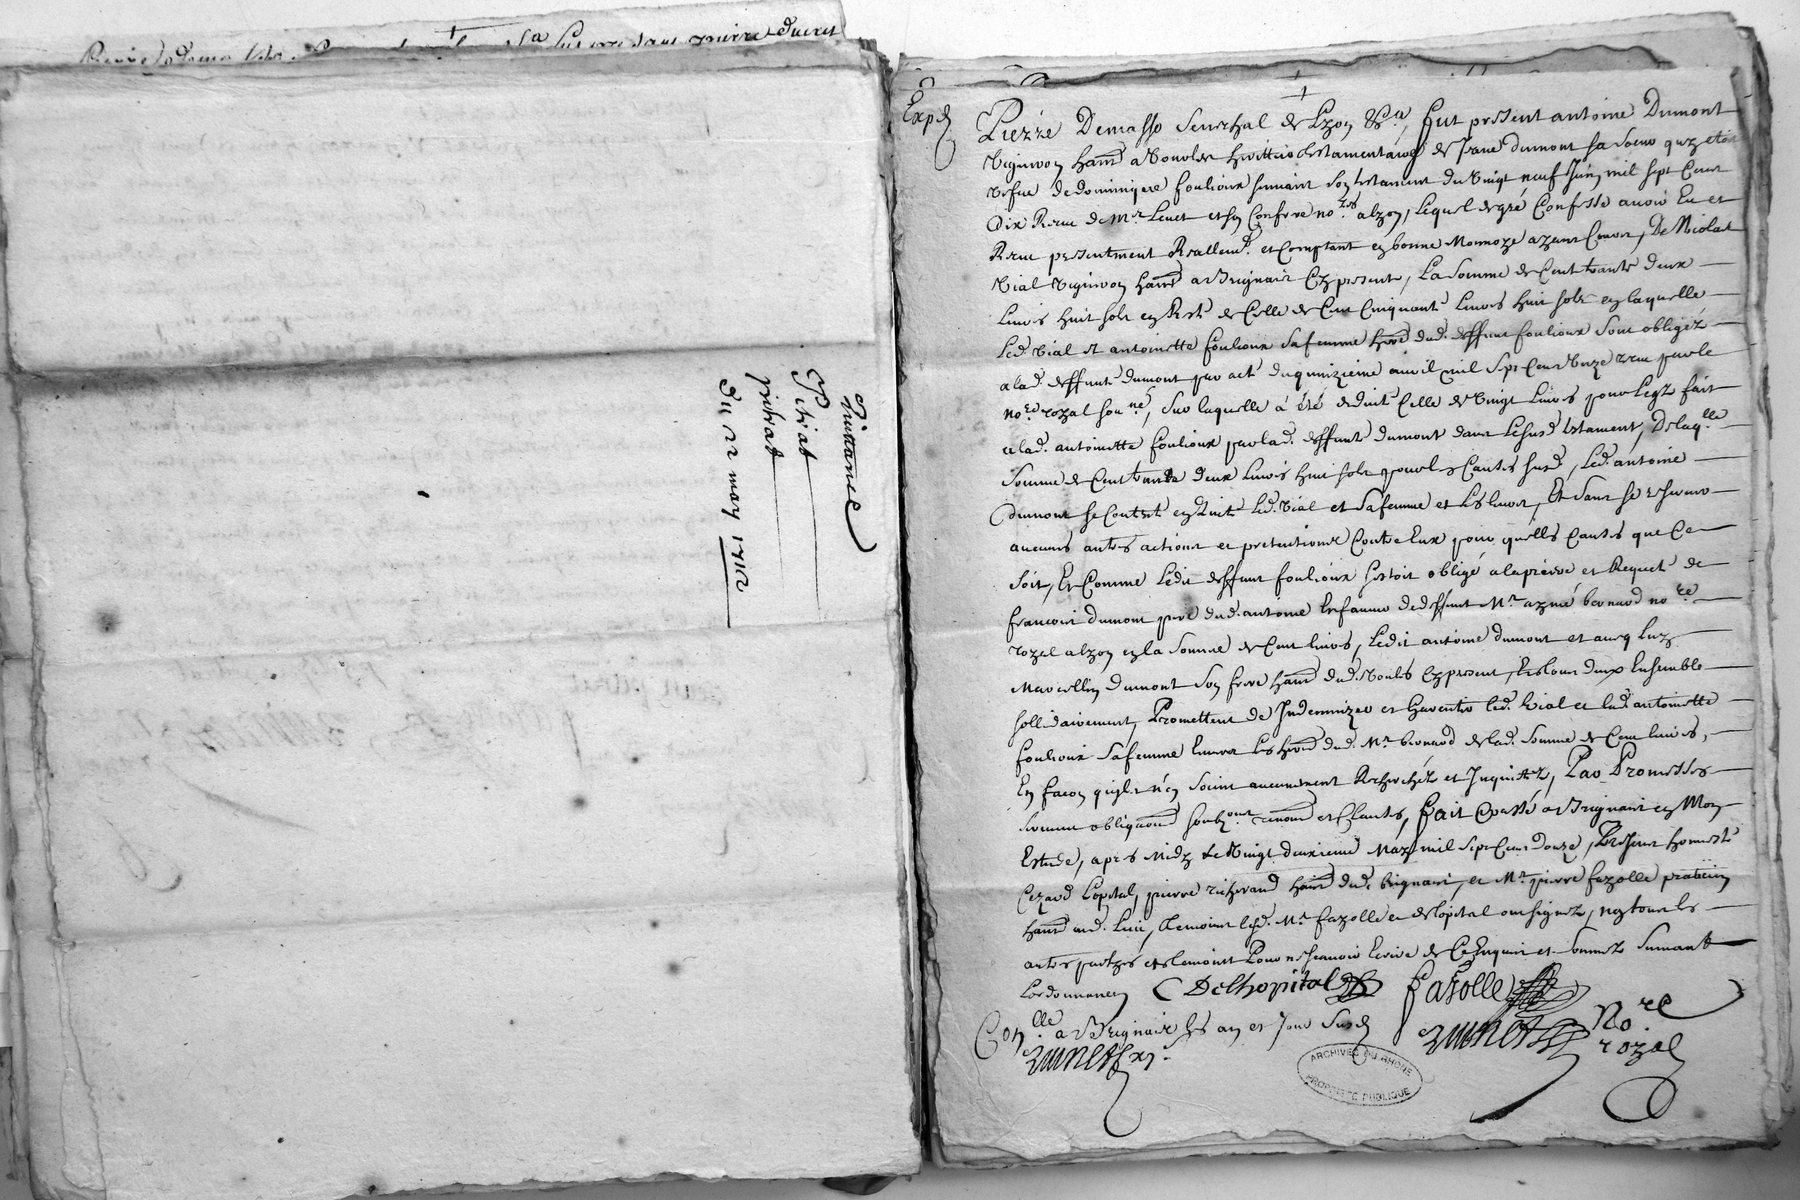 Quittance
Pitiot
pitiot
Du 22 may 1712
Expé
Pierre Demasso Senechal de Lyon &a, fut present antoine Dumont
Vigneron hant a Vourles heritier testamentaire de Jeane dumont sa soeur quy etoit
Vefue de dominique foulioux suiuant son testament du Vingt neuf Juin mil sept Cent
Dix Receu de Mr et son Confrere nores a lyon, lequel de gré Confesse auoir Eu et
Receu presentment Reallemt. et Comptant en bonne Monnoye ayant Cours, De Nicolas
Vial Vigneron hant a Brignais Cy present, La Somme de Cent trante deux
Liures huit sols en Reste de Celle de Cent Cinquante Liures huit sols en laquelle
Led. Vial et antoinette foulioux sa femme dud. deffunt foulioux sont obligéz
a lad. deffunte dumont par acte du quinzieme auril mil sept Cent Unze receu par le
nore royal sousné, sur laquelle a été deduite Celle de Vingt Liures pour Legt fait
a lad. antoinette foulioux par lad. deffunte dumont dans le susd. testament, De laqlle
Somme de Cent trante deux Liures huit sols pour les Causes susd., Led. antoine
dumont se Contente en quitte led. Vial et sa femme et les leurs, Et sans se reseruer
aucunes autres actions et pretentions Contre Eux pour quelles Causes que Ce
soit, Et Comme Ledit deffunt foulioux s'estoit obligé a la priere et Requete de
francois dumont pere dud. antoine En faueur de deffunt Mr aymé bernard nore
royal a lyon en la Somme de Cent liures, Ledit antoine dumont et aueq luy
Marcellin dumont son frere hant dud. Vourles Cy present, Et tous deux Ensemble
sollidairement, Promettent de Indemnizer et Garentir led. Vial et lad. antoinette
foulioux sa femme Enuers les dud. Mr bernard de lad. Somme de Cent liures,
En facon qu'ils n'en soient aucunement Recherchéz et Inquiettéz, Par Promesses
serment obligaons et Clauses, fait & passé a Brignais en Mon
Estude, apres Midy Le Vingt deuxieme May mil sept Cent douze, Presents honneste
Cezard Lopital, pierre hant dud. Brignais, et Mr pierre fayolle praticien
hant aud. Lieu, temoins led. Mr fayolle et delopital ont signez, non tous les
autres partyes et temoins Pour ne scauoir Ecrire de Ce Enquis et Sommez Suiuant
Lordonnance
Delhopital fayolle
Conlle a Brignais les an et Jour susd
nore royal
ARCHIVES DU RHONE
PROPRIETE PUBLIQUE